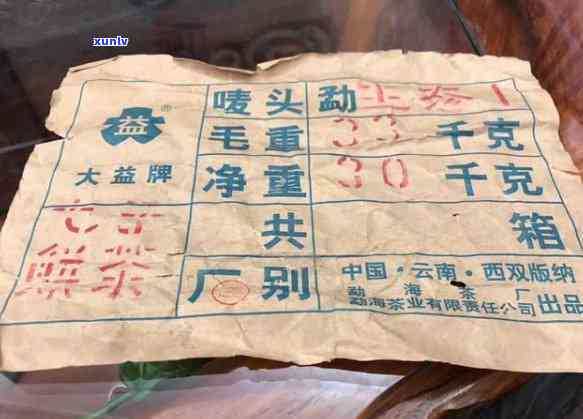 xunlv
唛头 勐
益 ®
毛重 33 千克
大益牌
净重 30 千克
七子
饼茶
共 箱
厂别
中国·云南·西双版纳
勐海茶厂
勐海茶业有限责任公司 出品